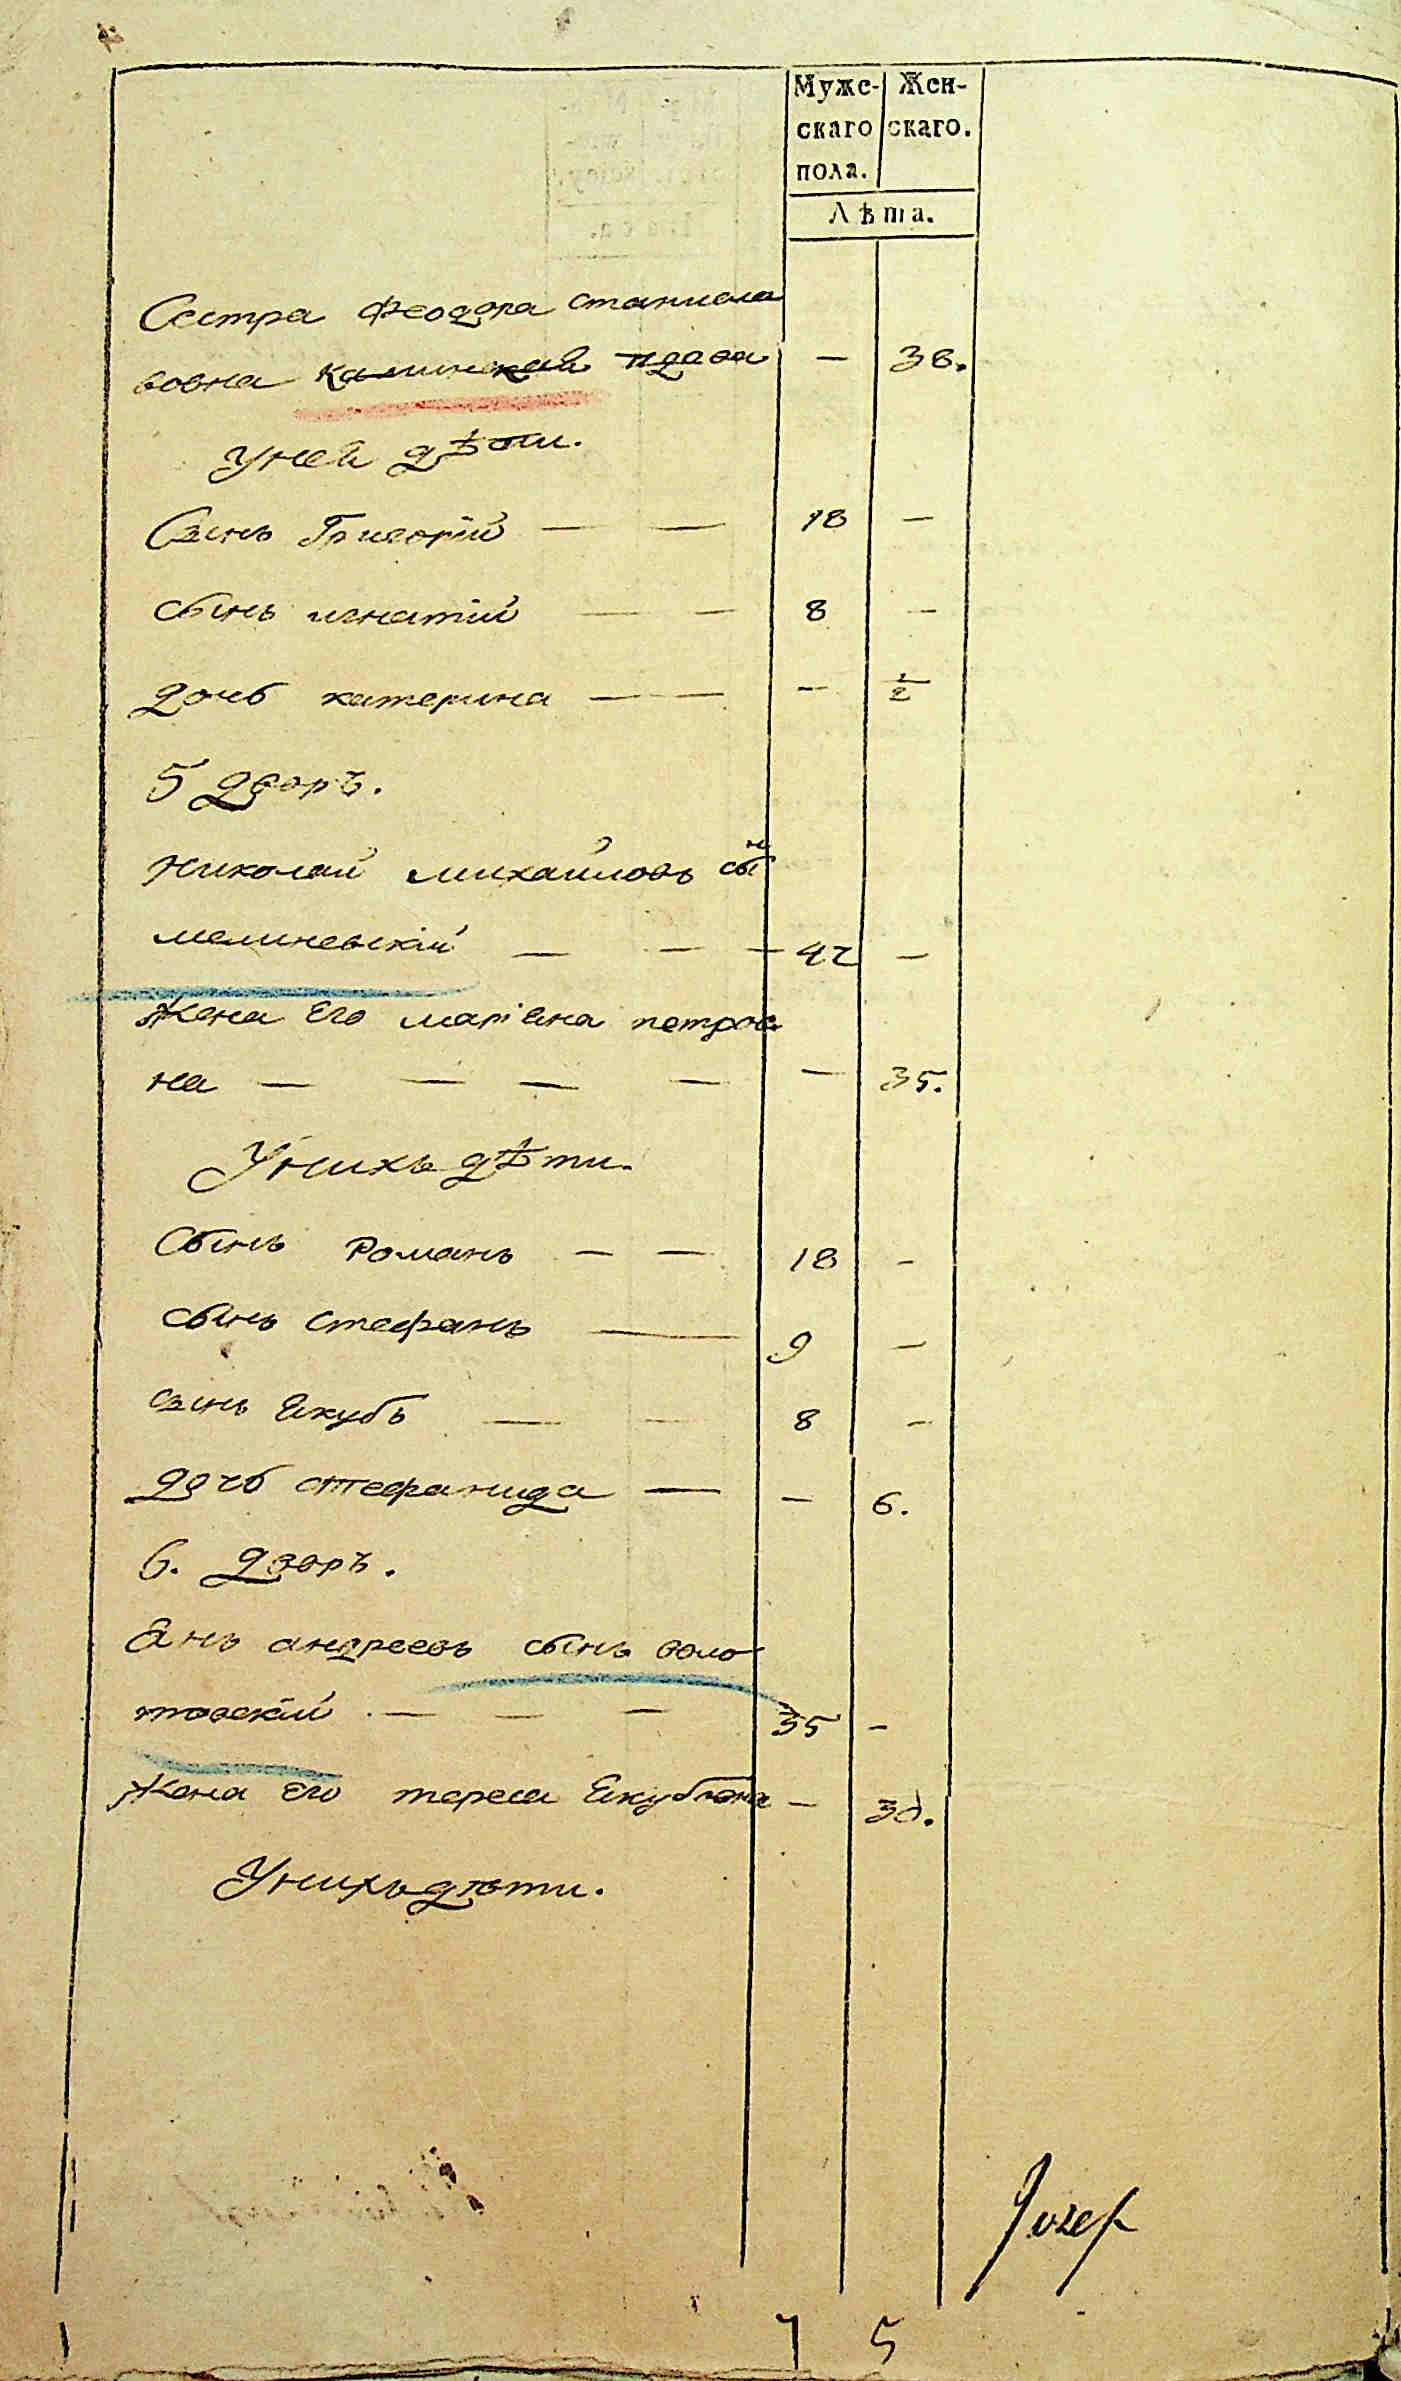 Муже- Жен-
скаго скаго.
пола.
Лѣта.
Сестра Феодора станисла
вовна калинская вдова — 38.
Унея дѣти.
Сынъ Григорій — — 18 —
сынъ игнатій — — 8 —
дочь катерина — — — 1/2
5 дворъ.
Николай михайловъ сынъ
мелиневскій — — — 42 —
Жена его маріяна петров
на — — — — — 35.
Унихъ дѣти.
Сынъ Романъ — — 18 -
сынъ стефанъ — 9 —
сынъ Якубъ — — 8 -
дочь стефанида — — 6.
6. дворъ.
Янъ андреевъ сынъ воло
товскій — — — 35 -
Жена его тереса Якубовна — 30.
Унихъ дѣти.
Jozef
7 5